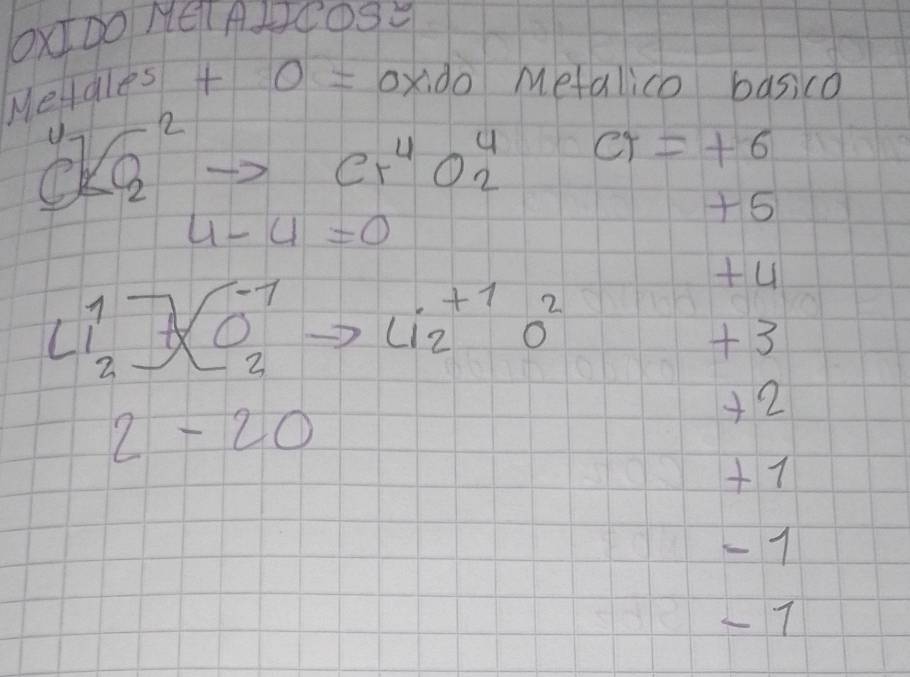 OXIDO METALICOS=
Metales + O = oxido Metalico basico
Cr⁴ O₂² → Cr⁴ O₂⁴ Cr = +6
+5
4 - 4 = 0
+4
Li₂¹ + O₂⁻¹ → Li₂⁺¹ O² +3
+2
2 - 20
+1
- 1
- 1